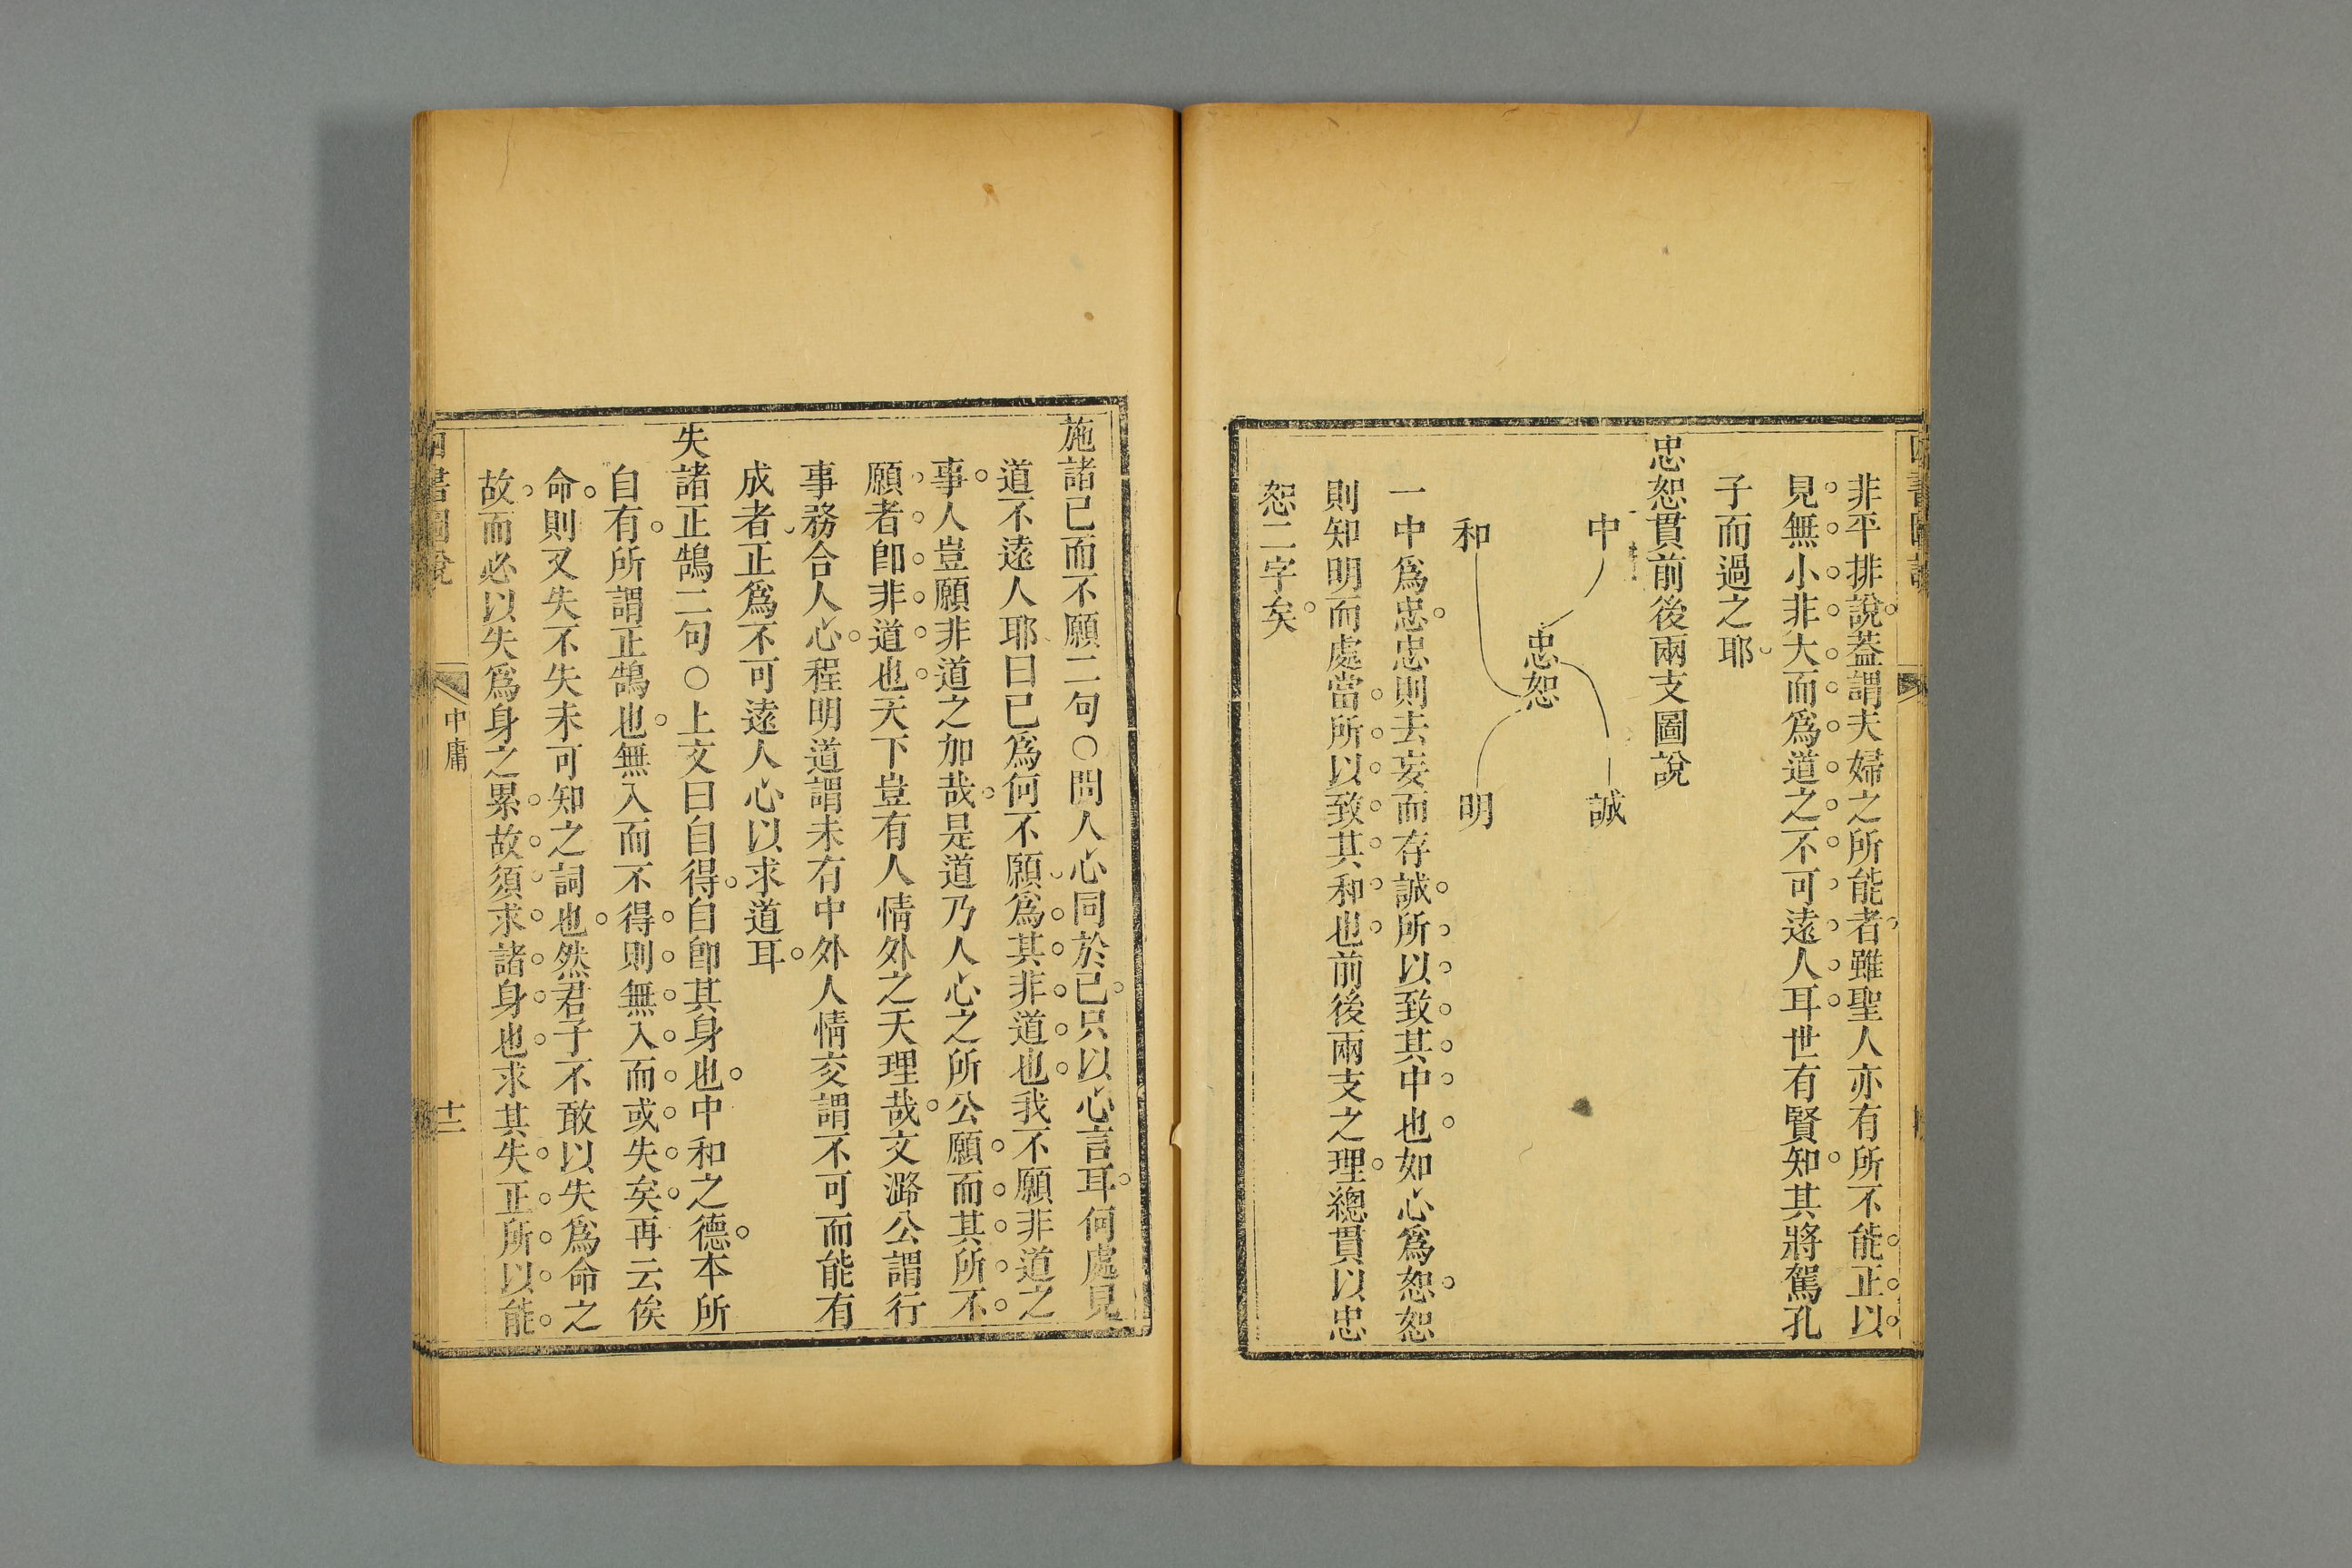 非平排說蓋謂夫婦之所能者雖聖人亦有所不能正以
見無小非大而爲道之不可遠人耳世有賢知其將駕孔
子而過之耶
忠恕貫前後兩支圖說
中
誠
忠恕
和
明
一中爲忠忠則去妄而存誠所以致其中也如心爲恕恕
則知明而處當所以致其和也前後兩支之理總貫以忠
恕二字矣
施諸己而不願二句○問人心同於己只以心言耳何處見
道不遠人耶曰已爲何不願爲其非道也我不願非道之
事人豈願非道之加哉是道乃人心之所公願而其所不
願者卽非道也天下豈有人情外之天理哉文潞公謂行
事務合人心程明道謂未有中外人情交謂不可而能有
成者正爲不可遠人心以求道耳
失諸正鵠二句○上文曰自得自卽其身也中和之德本所
自有所謂正鵠也無入而不得則無入而或失矣再云俟
命則又失不失未可知之詞也然君子不敢以失爲命之
故而必以失爲身之累故須求諸身也求其失正所以能
四書圖說
中庸
十三